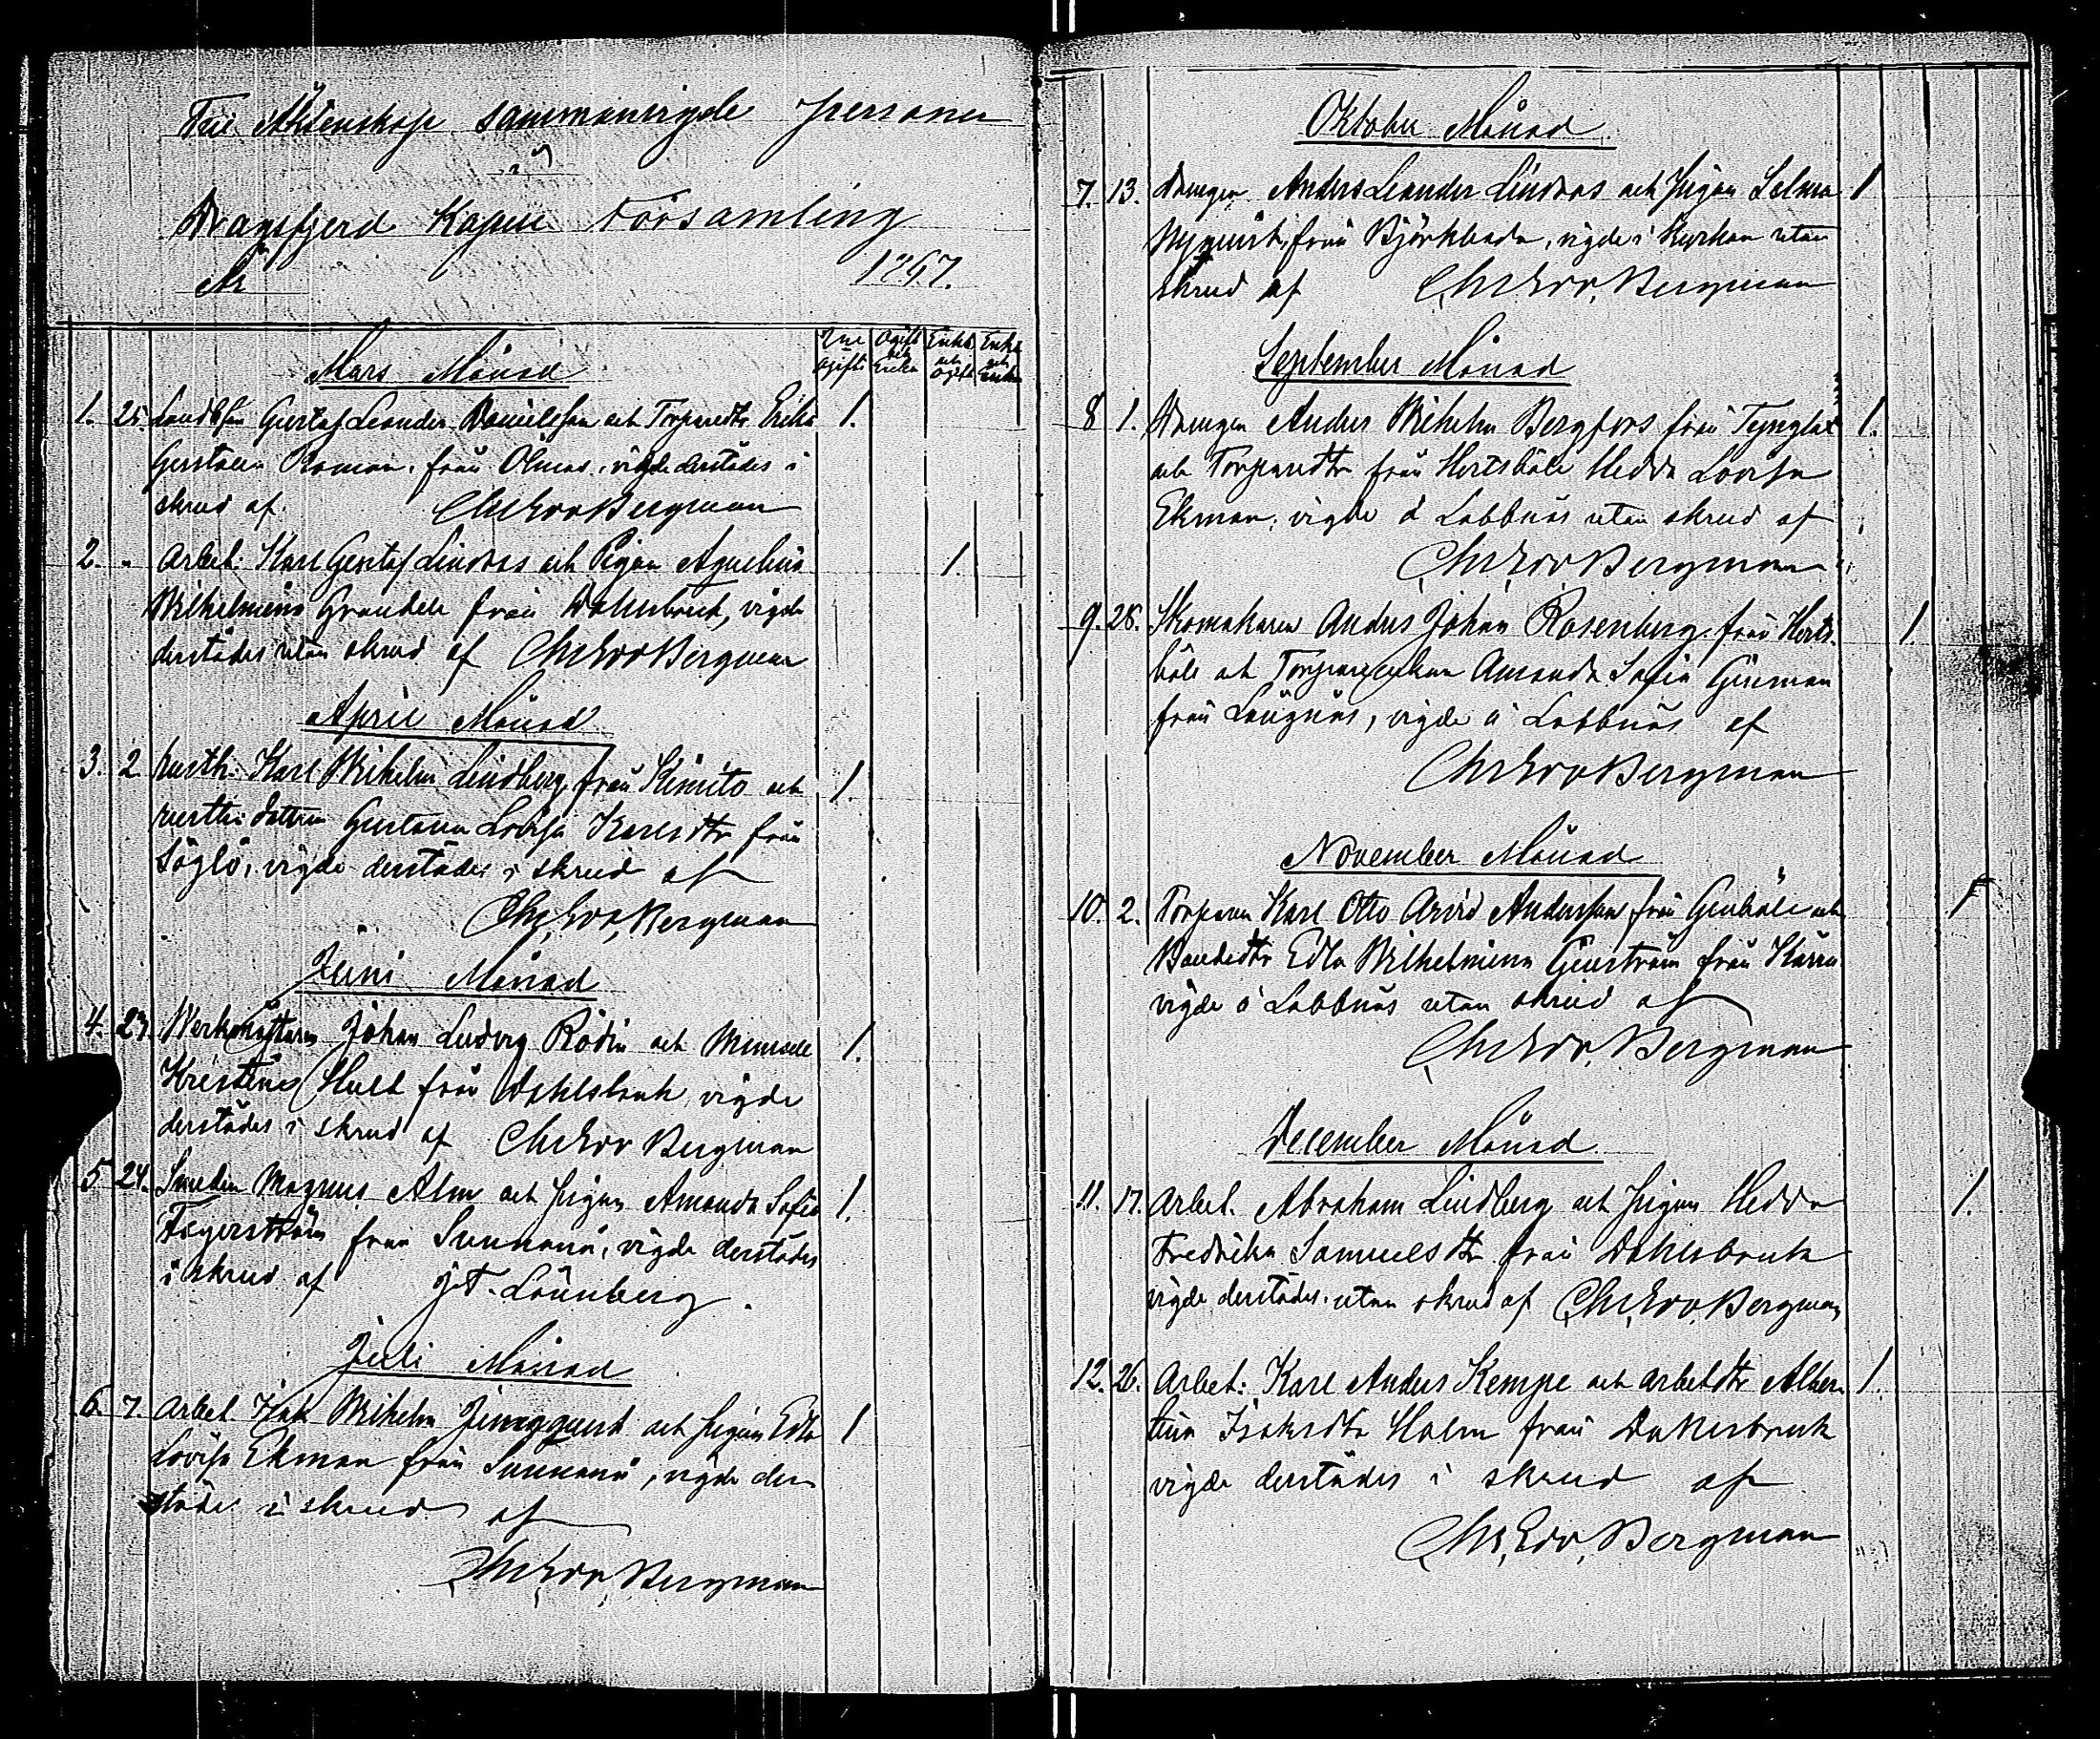 Till Äktenskap sammanvigde personer
i
Dragsfjerd Kapell Församling
År 1867.
Tvu ogifte
Ogift och Enka
Enkl. och ogift
Enkl. och Enka
Mars Månad
1. 25. Landbson Gustaf Leander Danielsson och Torparedtr Erika 1.
Gustava Roman, från Ölmos, vigde derstädes i
skrud af Chr. Edv. Bergman
2. " Arbet: Karl Gustaf Lindroos och Pigan Agnelina 1.
Wilhelmina Grandell från Dahlsbruk, vigde
derstädes utan skrud af Chr Edv Bergman
April Månad
3. 2. Rusth: Karl Wilhelm Lindberg från Kimito och 1.
rusth: dottren Gustava Lovisa Karlsdtr från
Söglö, vigde derstädes i skrud af
Chr. Edv. Bergman
Juni Månad
4. 23. Werkmästaren Johan Ludvig Rodin och Mamsell 1.
Kristina Hult från Dahlsbruk, vigde
derstädes i skrud af Chr Edv Bergman
5 24. Smeden Magnus Alm och pigan Amanda Sofia 1.
Fagerström från Sunnanå, vigde derstädes
i skrud af G. A. Lönnberg.
Juli Månad
6. 7. Arbet. Isak Wilhelm Ljungqvist och pigan Edla 1
Lovisa Ekman från Sunnanå, vigde der
städes i skrud af
Chr. Edv. Bergman
Oktober Månad
7. 13. Drengen Anders Leander Lindroos och Pigan Selma 1
Nyqvist, från Björkboda, vigde i Kyrkan utan
skrud af Chr Edv. Bergman
September Månad
8 1. Drengen Anders Wilhelm Bergfors från Tynglax 1.
och Torparedtr från Hertsböle Hedda Lovisa
Ekman, vigde å Labbnäs utan skrud af
Chr. Edv Bergman
9. 28. Skomakaren Anders Johan Rosenberg från Herts- 1.
böle och Torpareenkan Amanda Sofia Ginman
från Långnäs, vigde å Labbnäs af
Chr Edv Bergman
November Månad
10. 2. Torparen Karl Otto Arvid Andersson från Genböle och 1
Bondedtr Edla Wilhelmina Ginström från Kärra
vigde å Labbnäs utan skrud af
Chr Edv. Bergman
December Månad
11. 17. Arbet. Abraham Lindberg och pigan Hedda 1.
Fredrika Samuelsdtr från Dahlsbruk
vigde derstädes utan skrud af Chr, Edv, Bergman
12. 26. Arbet: Karl Anders Kempe och arbetdtr Alber- 1.
tina Isaksdtr Holm från Dahlsbruk
vigde derstädes i skrud af
Chr, Edv, Bergman